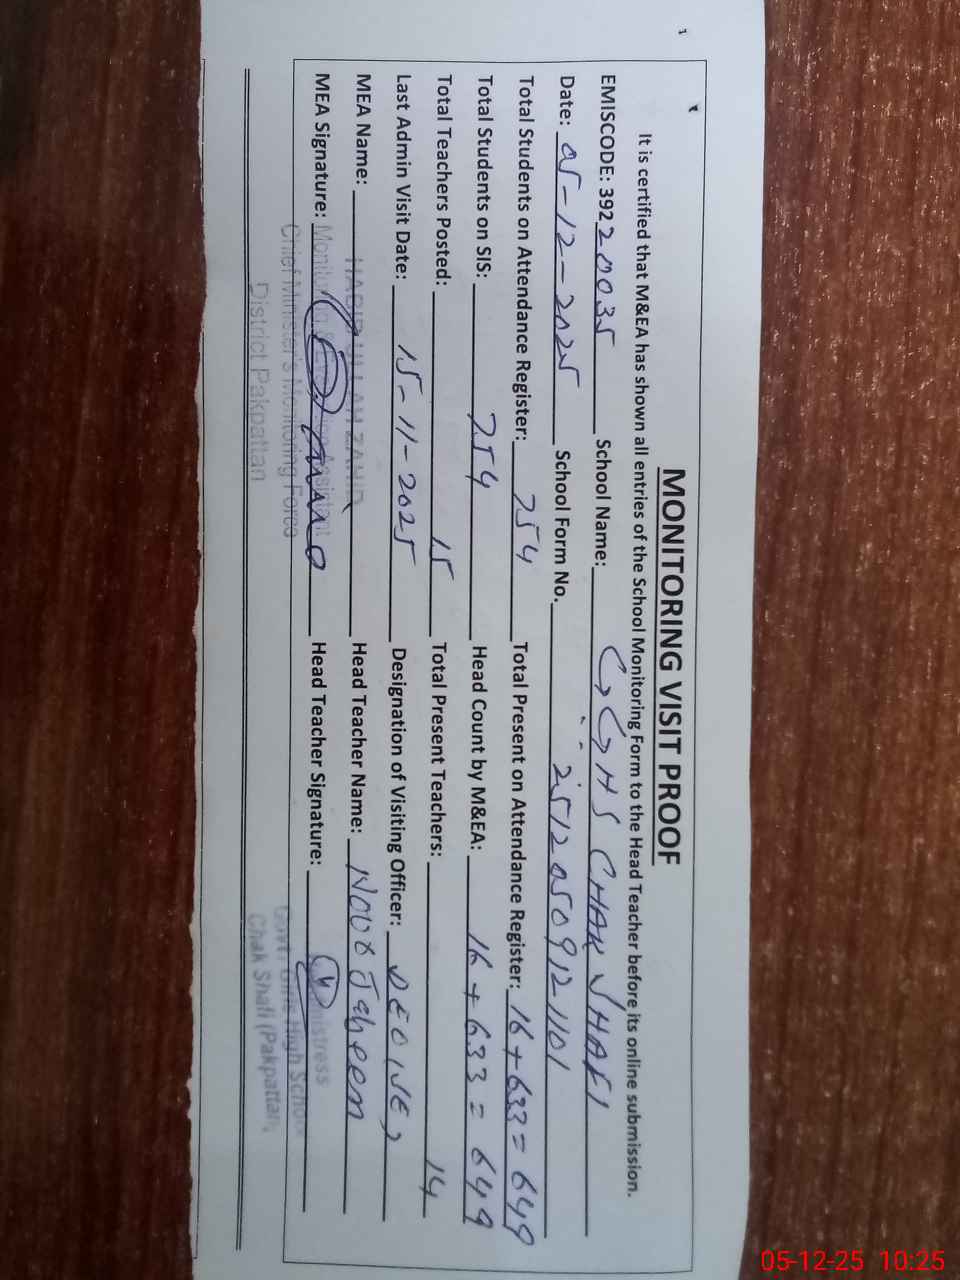 MONITORING VISIT PROOF
It is certified that M&EA has shown all entries of the School Monitoring Form to the Head Teacher before its online submission.
EMISCODE: 39220035 School Name: GGHS CHAK SHAFI
Date: 05-12-2025 School Form No. 25120509121101
Total Students on Attendance Register: 754 Total Present on Attendance Register: 16+633=649
Total Students on SIS: 754 Head Count by M&EA: 16+633=649
Total Teachers Posted: 15 Total Present Teachers: 14
Last Admin Visit Date: 15-11-2025 Designation of Visiting Officer:
MEA Name: HABIB ULLAH ZAHID Head Teacher Name: Noor Jaheen
MEA Signature: Head Teacher Signature:
Chief Minister's Monitoring Force
District Pakpattan
Govt. Girls High School
Chak Shafi (Pakpattan)
05-12-25 10:25